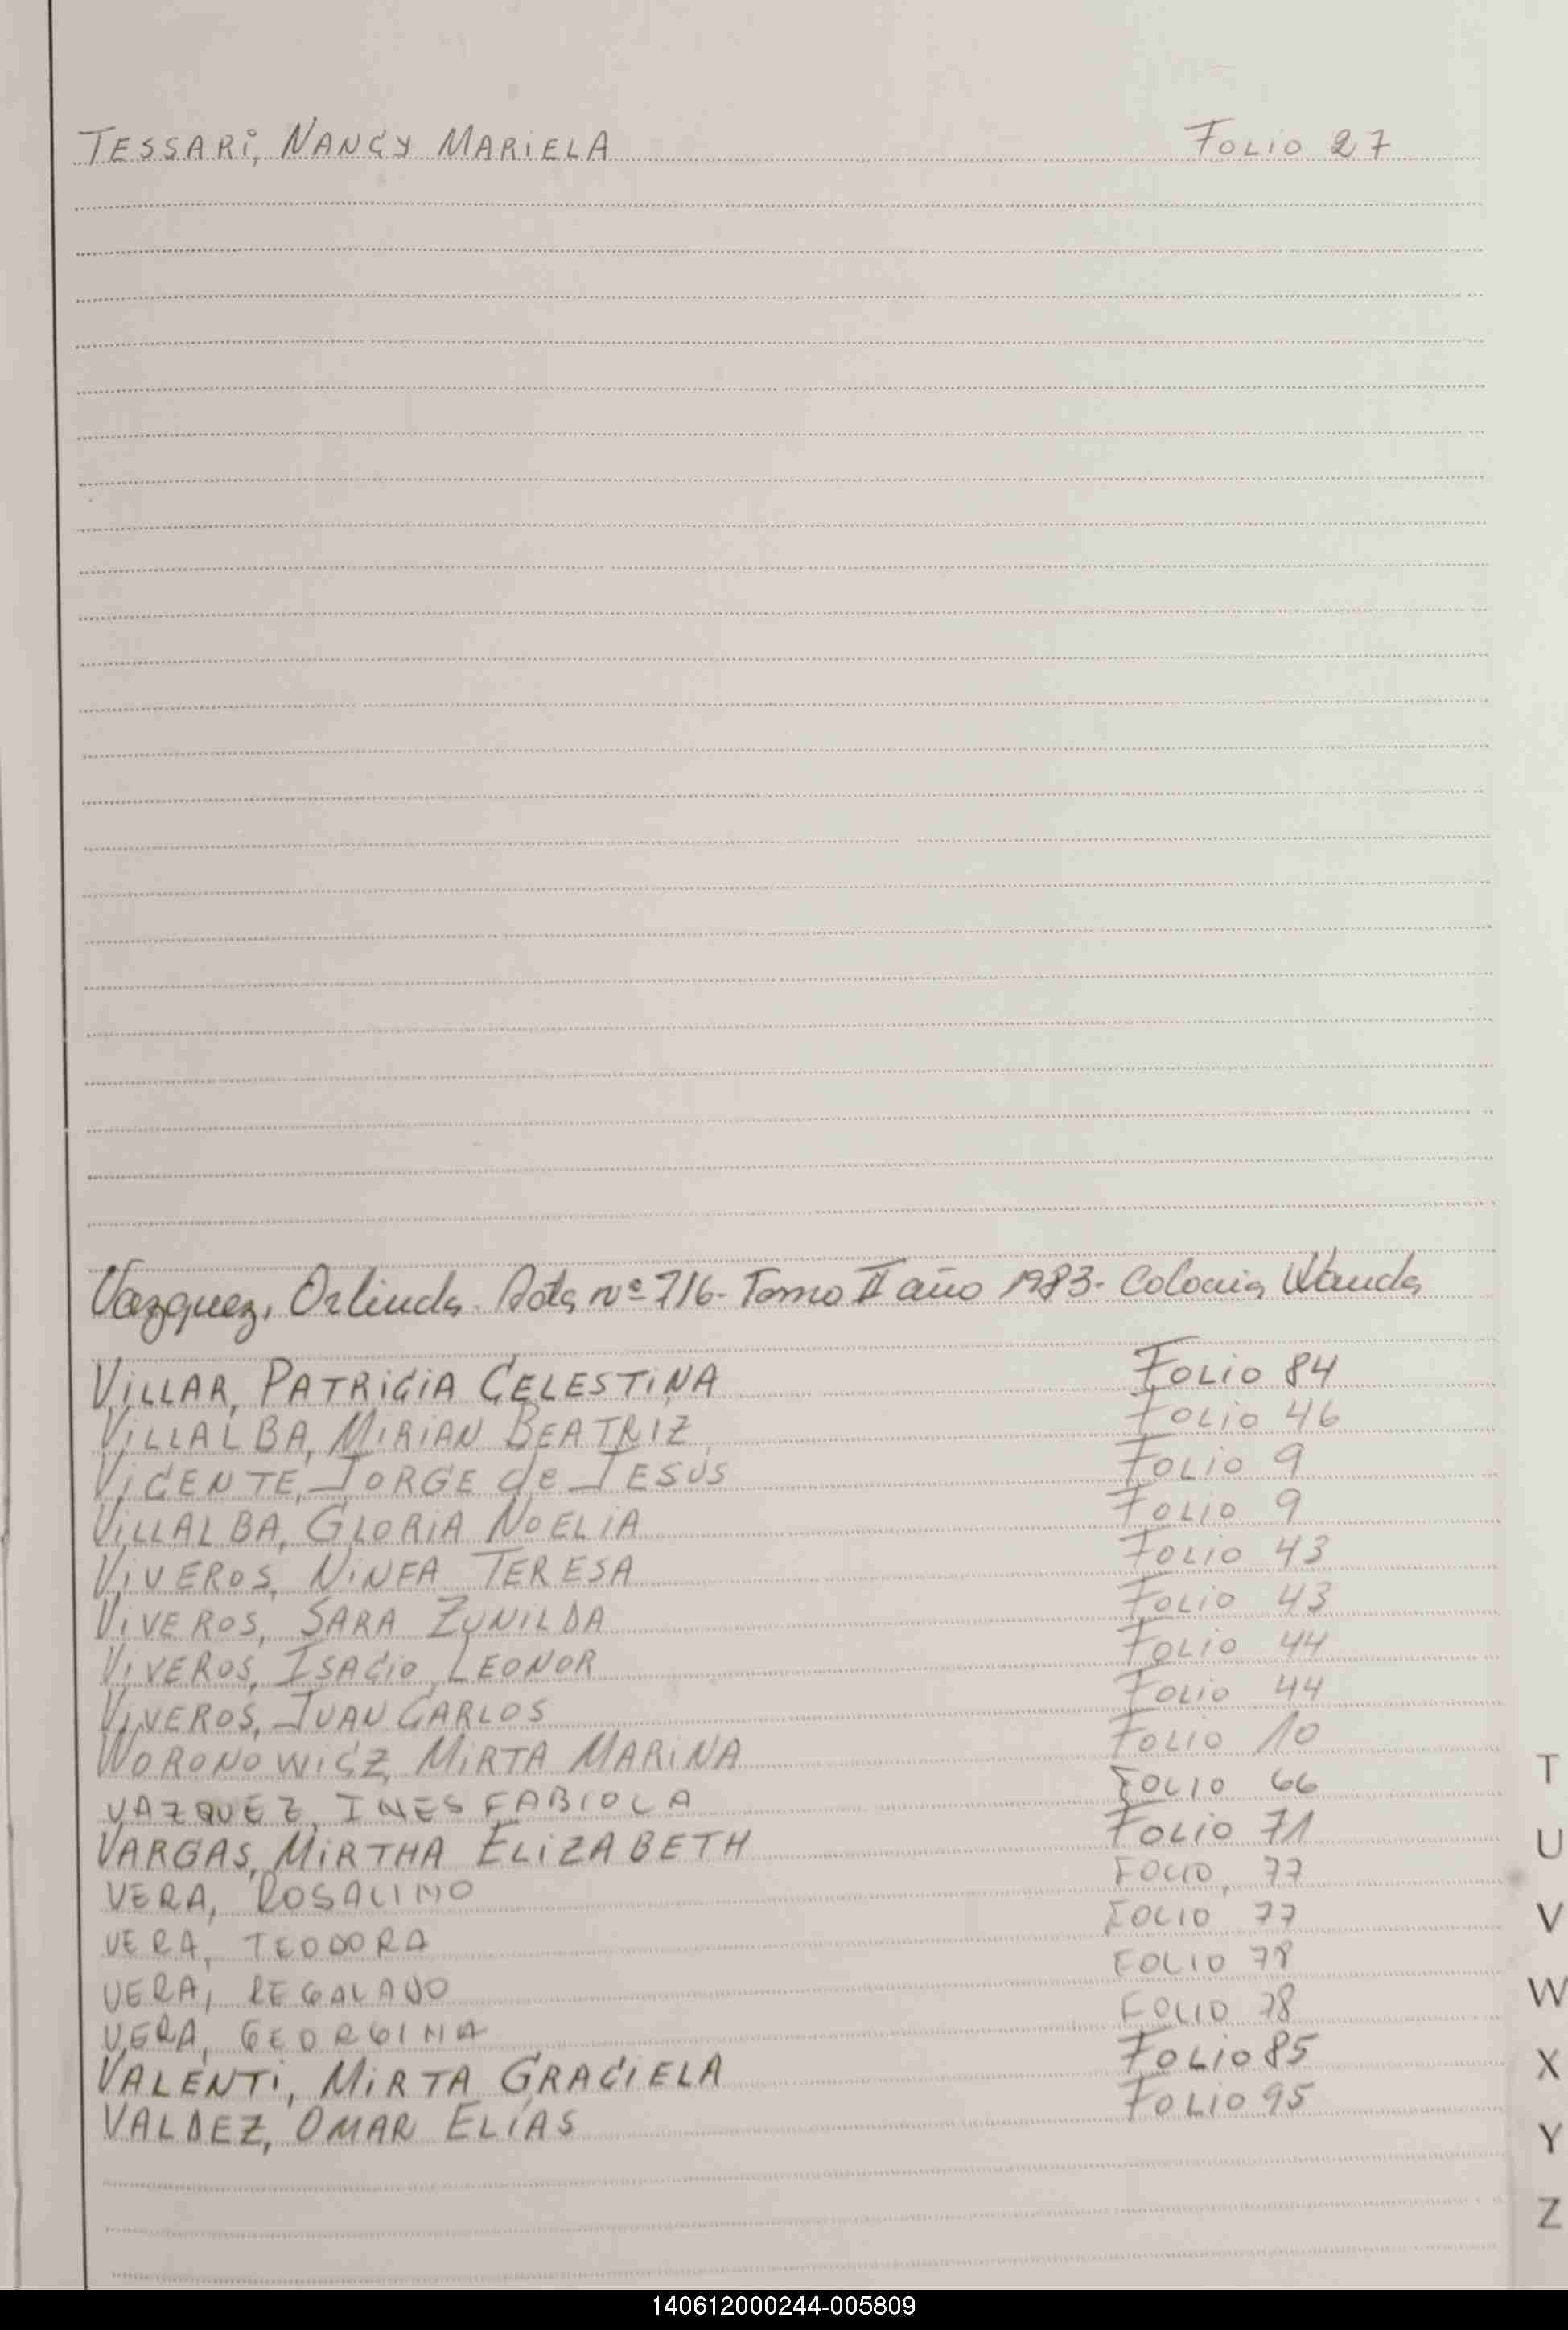 TESSARI, NANCY MARIELA FOLIO 27
Vazquez, Orlinda. Acta nº 716- Tomo II año 1983- Colonia Wanda
VILLAR, PATRICIA CELESTINA FOLIO 84
VILLALBA, MIRIAN BEATRIZ FOLIO 46
VICENTE, JORGE de JESÚS FOLIO 9
VILLALBA, GLORIA NOELIA FOLIO 9
VIVEROS, NINFA TERESA FOLIO 43
VIVEROS, SARA ZUNILDA FOLIO 43
VIVEROS, ISACIO LEONOR FOLIO 44
VIVEROS, JUAN CARLOS FOLIO 44
WORONOWICZ, MIRTA MARINA FOLIO 10
VAZQUEZ, INES FABIOLA FOLIO 66
VARGAS, MIRTHA ELIZABETH FOLIO 71
VERA, ROSALINO FOLIO, 77
VERA, TEODORA FOLIO 77
VERA, REGALADO FOLIO 78
VERA, GEORGINA FOLIO 78
VALENTI, MIRTA GRACIELA FOLIO 85
VALDEZ, OMAR ELÍAS FOLIO 95
T
U
V
W
X
Y
Z
140612000244-005809